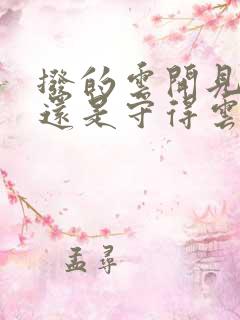 撥的雲開見
還是守得雲
孟尋